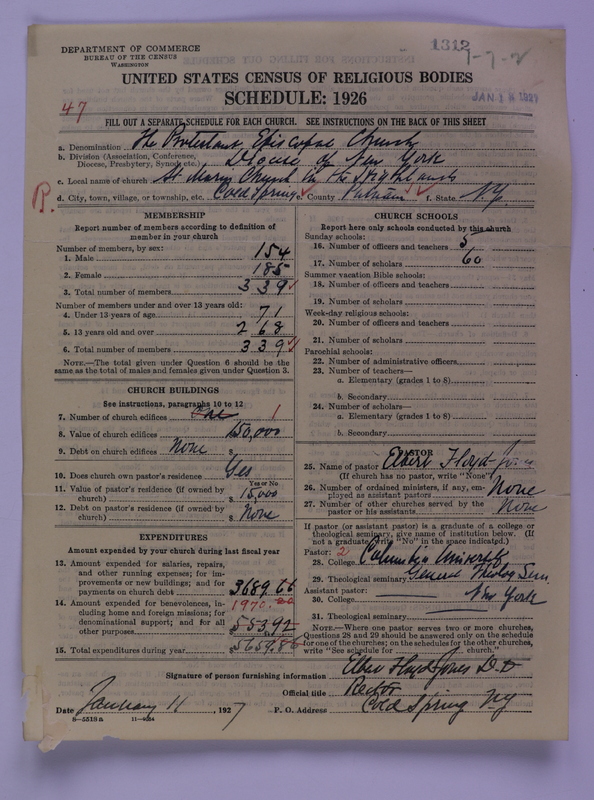 1312
1-7-2
DEPARTMENT OF COMMERCE
BUREAU OF THE CENSUS
WASHINGTON
UNITED STATES CENSUS OF RELIGIOUS BODIES
SCHEDULE: 1926
JAN 1 1927
47
FILL OUT A SEPARATE SCHEDULE FOR EACH CHURCH. SEE INSTRUCTIONS ON THE BACK OF THIS SHEET
a. Denomination The Protestant Episcopal Church
b. Division (Association, Conference, Diocese, Presbytery, Synod, etc.) Diocese of New York
c. Local name of church St Marys Church in the Highlands
R.
d. City, town, village, or township, etc. Cold Spring e. County Putnam f. State N.Y
MEMBERSHIP
Report number of members according to definition of
member in your church
Number of members, by sex:
1. Male 154
2. Female 185
3. Total number of members 339
Number of members under and over 13 years old:
4. Under 13 years of age 71
5. 13 years old and over 268
6. Total number of members 339
NOTE.—The total given under Question 6 should be the
same as the total of males and females given under Question 3.
CHURCH BUILDINGS
See instructions, paragraphs 10 to 12
7. Number of church edifices One 1
8. Value of church edifices $150,000
9. Debt on church edifices None $
10. Does church own pastor's residence? Yes
Yes or No
11. Value of pastor's residence (if owned by
church) $15,000
12. Debt on pastor's residence (if owned by
church) $ None
EXPENDITURES
Amount expended by your church during last fiscal year
13. Amount expended for salaries, repairs,
and other running expenses; for im-
provements or new buildings; and for
payments on church debt $3689.66
14. Amount expended for benevolences, in-
cluding home and foreign missions; for
denominational support; and for all
other purposes 1970.20
$553.92
15. Total expenditures during year $5659.86
CHURCH SCHOOLS
Report here only schools conducted by this church
Sunday schools:
16. Number of officers and teachers 5
17. Number of scholars 60
Summer vacation Bible schools:
18. Number of officers and teachers
19. Number of scholars
Week-day religious schools:
20. Number of officers and teachers
21. Number of scholars
Parochial schools:
22. Number of administrative officers
23. Number of teachers—
a. Elementary (grades 1 to 8)
b. Secondary
24. Number of scholars—
a. Elementary (grades 1 to 8)
b. Secondary
PASTOR
25. Name of pastor Elbert Floyd-Jones
(If church has no pastor, write "None")
26. Number of ordained ministers, if any, em-
ployed as assistant pastors None
27. Number of other churches served by the
pastor or his assistants None
If pastor (or assistant pastor) is a graduate of a college or
theological seminary, give name of institution below. (If
not a graduate, write "No" in the space indicated.)
Pastor: 2
28. College Columbia University
29. Theological seminary General Theolog Sem.
Assistant pastor: New York
30. College
31. Theological seminary
NOTE.—Where one pastor serves two or more churches,
Questions 28 and 29 should be answered only on the schedule
for one of the churches; on the schedules for the other churches,
write "See schedule for ........ church."
Signature of person furnishing information Elbert Floyd Jones D.D
Official title Rector
Date January 11, 1927 P. O. Address Cold Spring NY
8—5518a 11—9264